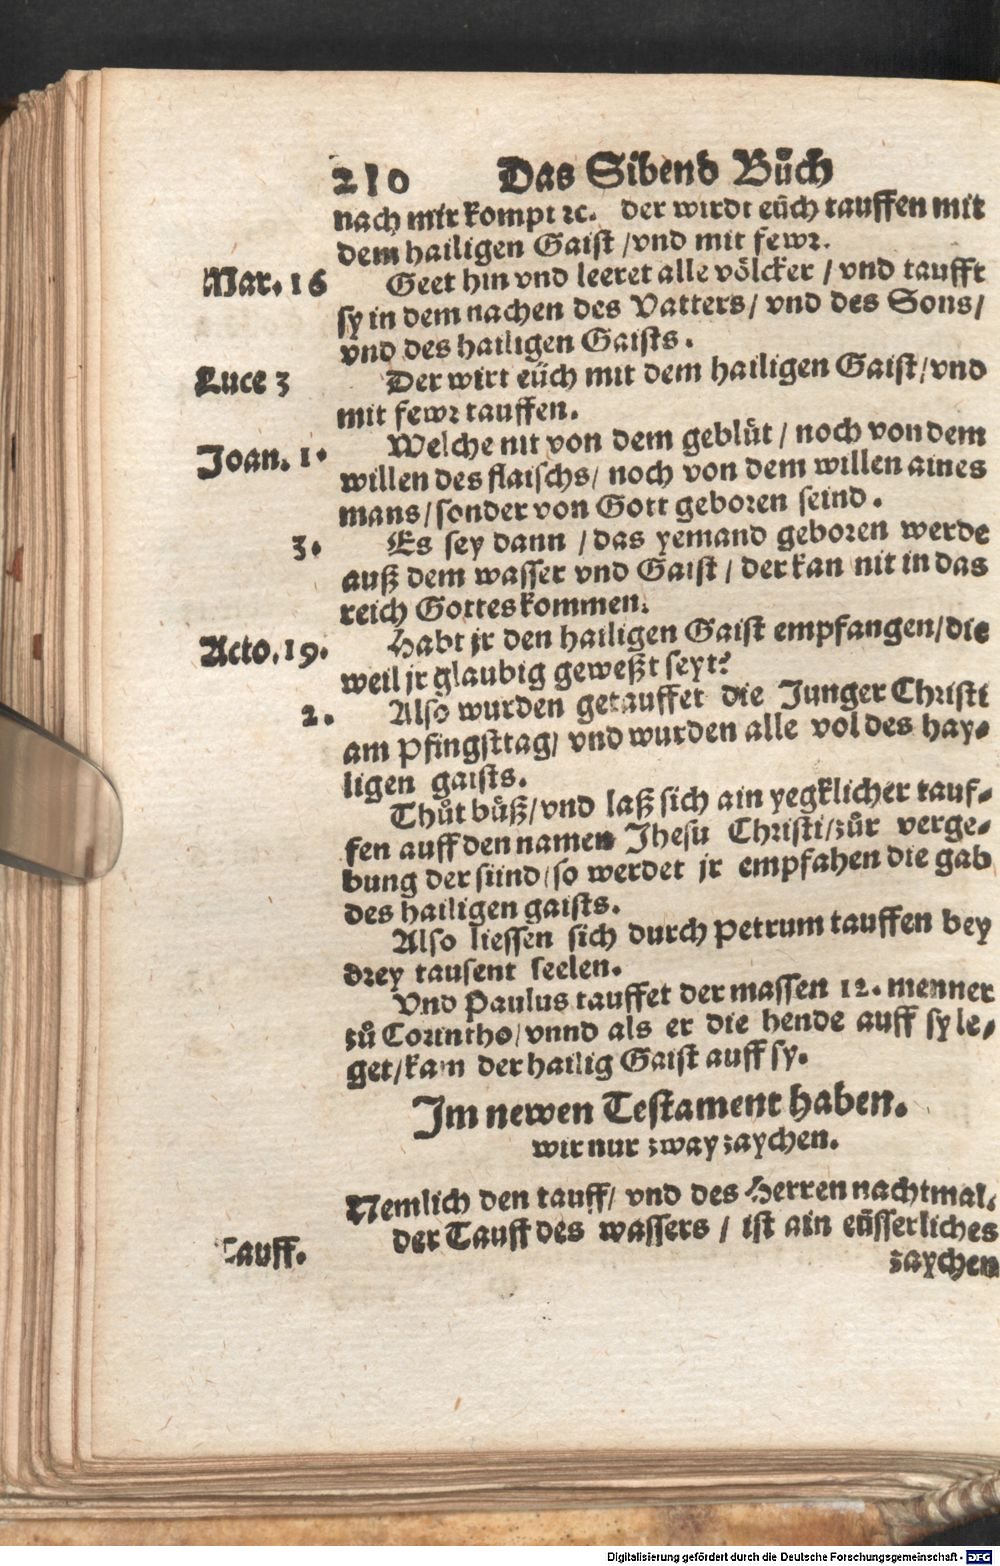 210 Das Sibend Bůch
nach mir kompt ꝛc. der wirdt eüch tauffen mit
dem hailigen Gaist / vnd mit fewr.
Mar. 16 Geet hin vnd leeret alle völcker / vnd taufft
sy in dem nachen des Vatters / vnd des Sons /
vnd des hailigen Gaists.
Luce 3 Der wirt eüch mit dem hailigen Gaist / vnd
mit fewr tauffen.
Joan. 1. Welche nit von dem geblüt / noch von dem
willen des flaischs / noch von dem willen aines
mans / sonder von Gott geboren seind.
3. Es sey dann / das yemand geboren werde
auß dem wasser vnd Gaist / der kan nit in das
reich Gottes kommen.
Acto. 19. Habt jr den hailigen Gaist empfangen / die
weil jr glaubig geweßt seyt?
2. Also wurden getauffet die Junger Christi
am Pfingsttag / vnd wurden alle vol des hay-
ligen gaists.
Thůt bůß / vnd laß sich ain yegklicher tauf-
fen auff den namen Jhesu Christi / zůr verge-
bung der sünd / so werdet jr empfahen die gab
des hailigen gaists.
Also liessen sich durch Petrum tauffen bey
drey tausent seelen.
Vnd Paulus tauffet der massen 12. menner
zů Corintho / vnnd als er die hende auff sy le-
get / kam der hailig Gaist auff sy.
Im newen Testament haben.
wir nur zway zaychen.
Nemlich den tauff / vnd des Herren nachtmal.
Tauff. der Tauff des wassers / ist ain eüsserliches
zaychen
Digitalisierung gefördert durch die Deutsche Forschungsgemeinschaft - DFG